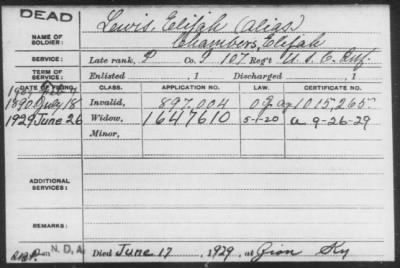 DEAD
NAME OF SOLDIER: Lewis, Elijah (alias)
Chambers, Elijah
SERVICE: Late rank, P Co. I, 107 Reg't U.S.C. Inf.
TERM OF SERVICE: Enlisted , 1 Discharged , 1
DATE OF FILING. CLASS. APPLICATION NO. LAW. CERTIFICATE NO.
1890 July 18 Invalid, 897.004 1015,265.
1929 June 26 Widow, 1647610 5-1-20 a 9-26-29
Minor,
ADDITIONAL SERVICES:
REMARKS:
N.D.A. Died June 17, 1929, at Zion Ky